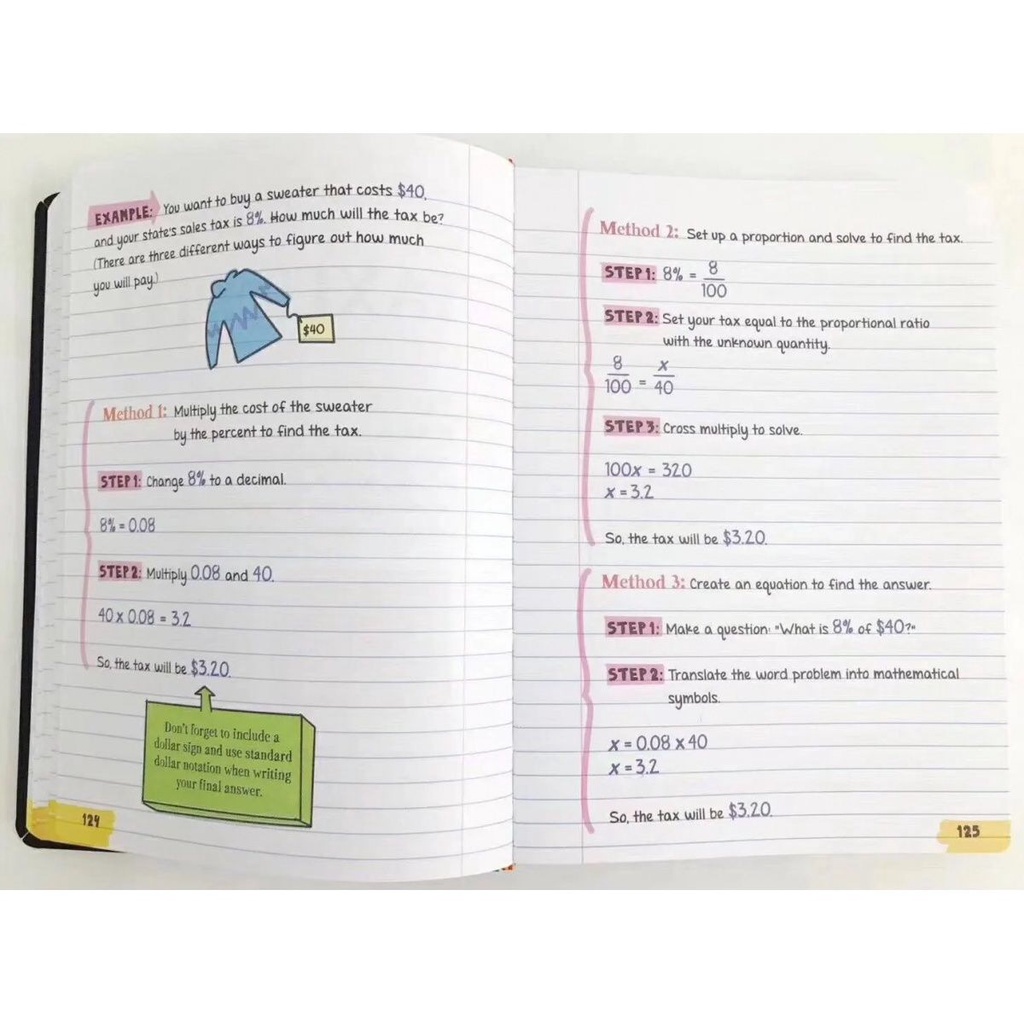 EXAMPLE: You want to buy a sweater that costs $40,
and your state's sales tax is 8%. How much will the tax be?
(There are three different ways to figure out how much
you will pay.)
$40
Method 1: Multiply the cost of the sweater
by the percent to find the tax.
STEP 1: Change 8% to a decimal.
8% = 0.08
STEP 2: Multiply 0.08 and 40.
40 x 0.08 = 3.2
So, the tax will be $3.20.
Don't forget to include a
dollar sign and use standard
dollar notation when writing
your final answer.
124
Method 2: Set up a proportion and solve to find the tax.
STEP 1: 8% = 8/100
STEP 2: Set your tax equal to the proportional ratio
with the unknown quantity.
8/100 = x/40
STEP 3: Cross multiply to solve.
100x = 320
x = 3.2
So, the tax will be $3.20.
Method 3: Create an equation to find the answer.
STEP 1: Make a question: "What is 8% of $40?"
STEP 2: Translate the word problem into mathematical
symbols.
x = 0.08 x 40
x = 3.2
So, the tax will be $3.20.
125